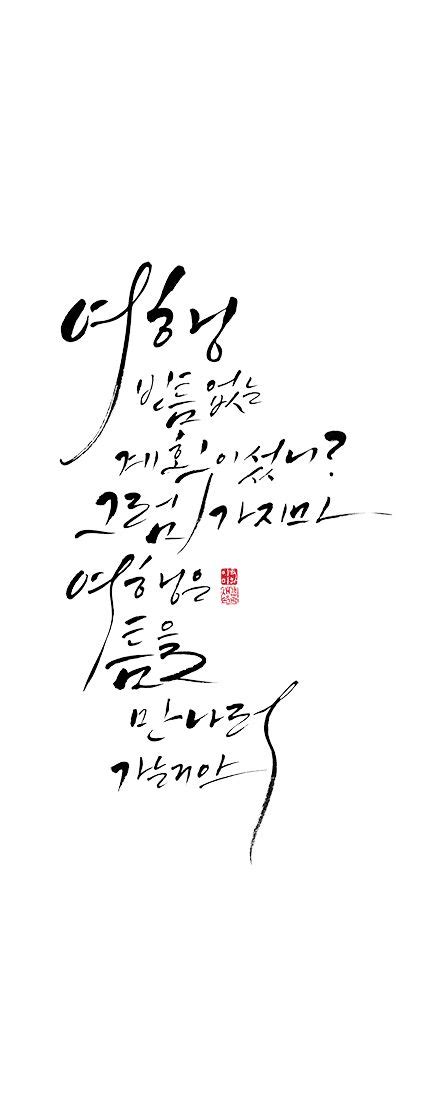 여행
빈틈없는
계획이섰니?
그럼 가지마
여행은
틈을
만나러
가는거야